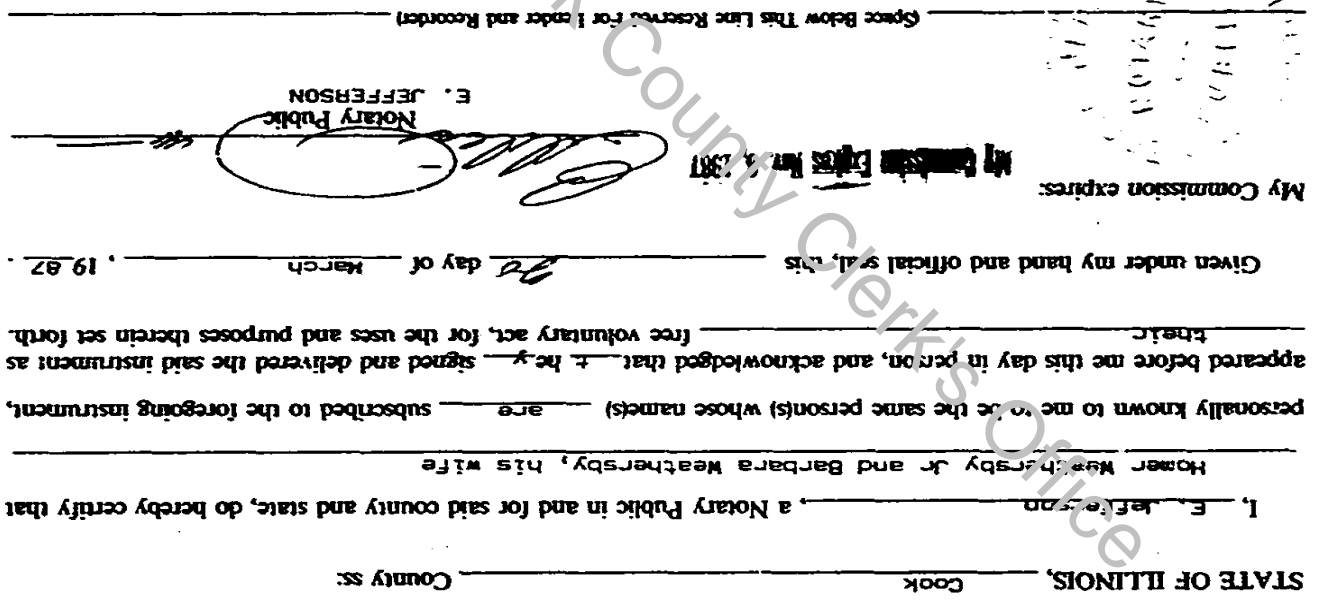 STATE OF ILLINOIS, Cook County ss:
I, E. Jefferson, a Notary Public in and for said county and state, do hereby certify that
Homer Weathersby Jr and Barbara Weathersby, his wife
personally known to me to be the same person(s) whose name(s) are subscribed to the foregoing instrument,
appeared before me this day in person, and acknowledged that t he y signed and delivered the said instrument as
their free voluntary act, for the uses and purposes therein set forth.
Given under my hand and official seal, this day of March, 19 87.
My Commission expires: My Commission Expires Nov. 1987
Notary Public
E. JEFFERSON
(Space Below This Line Reserved For Lender and Recorder)
County Clerk's Office